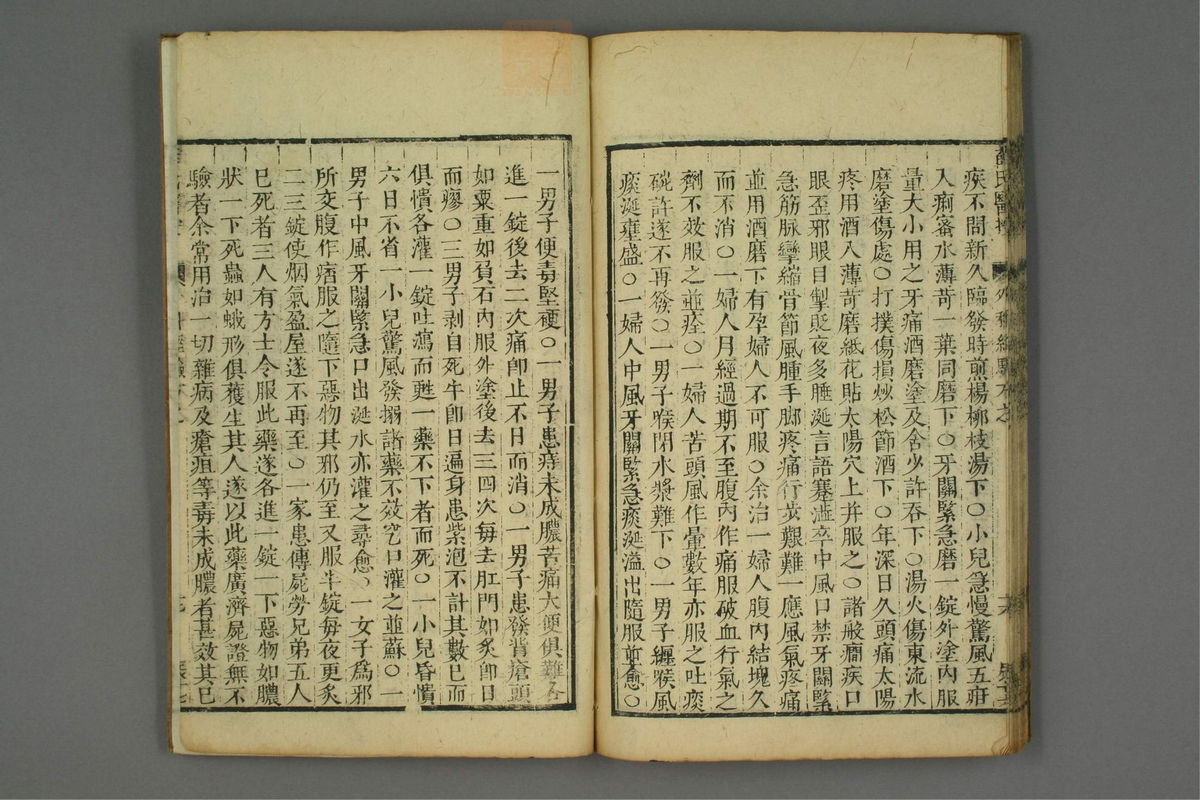 疾不問新久臨發時煎楊柳枝湯下〇小兒急慢驚風五疳
入痢蜜水薄苛一葉同磨下〇牙關緊急磨一錠外塗內服
量大小用之牙痛酒磨塗及含少許吞下〇湯火傷東流水
磨塗傷處〇打撲傷損炒松節酒下〇年深日久頭痛太陽
疼用酒入薄苛磨紙花貼太陽穴上并服之〇諸般癎疾口
眼歪邪眼目掣眨夜多睡涎言語蹇澁卒中風口禁牙關緊
急筋脉攣縮骨節風腫手脚疼痛行步艱難一應風氣疼痛
並用酒磨下有孕婦人不可服〇余治一婦人腹內結塊久
而不消〇一婦人月經過期不至腹內作痛服破血行氣之
劑不效服之並痊〇一婦人苦頭風作暈數年亦服之吐痰
碗許遂不再發〇一男子喉閉水漿難下〇一男子纏喉風
痰涎壅盛〇一婦人中風牙關緊急痰涎溢出隨服前愈〇
一男子便毒堅硬〇一男子患痔未成膿苦痛大便俱難各
進一錠後去二次痛卽止不日而消〇一男子患發背瘡頭
如粟重如負石內服外塗後去三四次每去肛門如炙卽日
而瘳〇三男子剥自死牛卽日遍身患紫泡不計其數已而
俱憒各灌一錠吐瀉而甦一藥不下者而死〇一小兒昏憒
六日不省一小兒驚風發搦諸藥不效㐫日灌之並蘇〇一
男子中風牙關緊急口出涎水亦灌之尋愈〇一女子爲邪
所交腹作痞服之隨下惡物其邪仍至又服半錠每夜更炙
二三錠使烟氣盈屋遂不再至〇一家患傳屍勞兄弟五人
已死者三人有方士令服此藥遂各進一錠一下惡物如膿
狀一下死蟲如蛾形俱獲生其人遂以此藥廣濟屍證無不
驗者余常用治一切雜病及瘡疽等毒未成膿者甚效其已